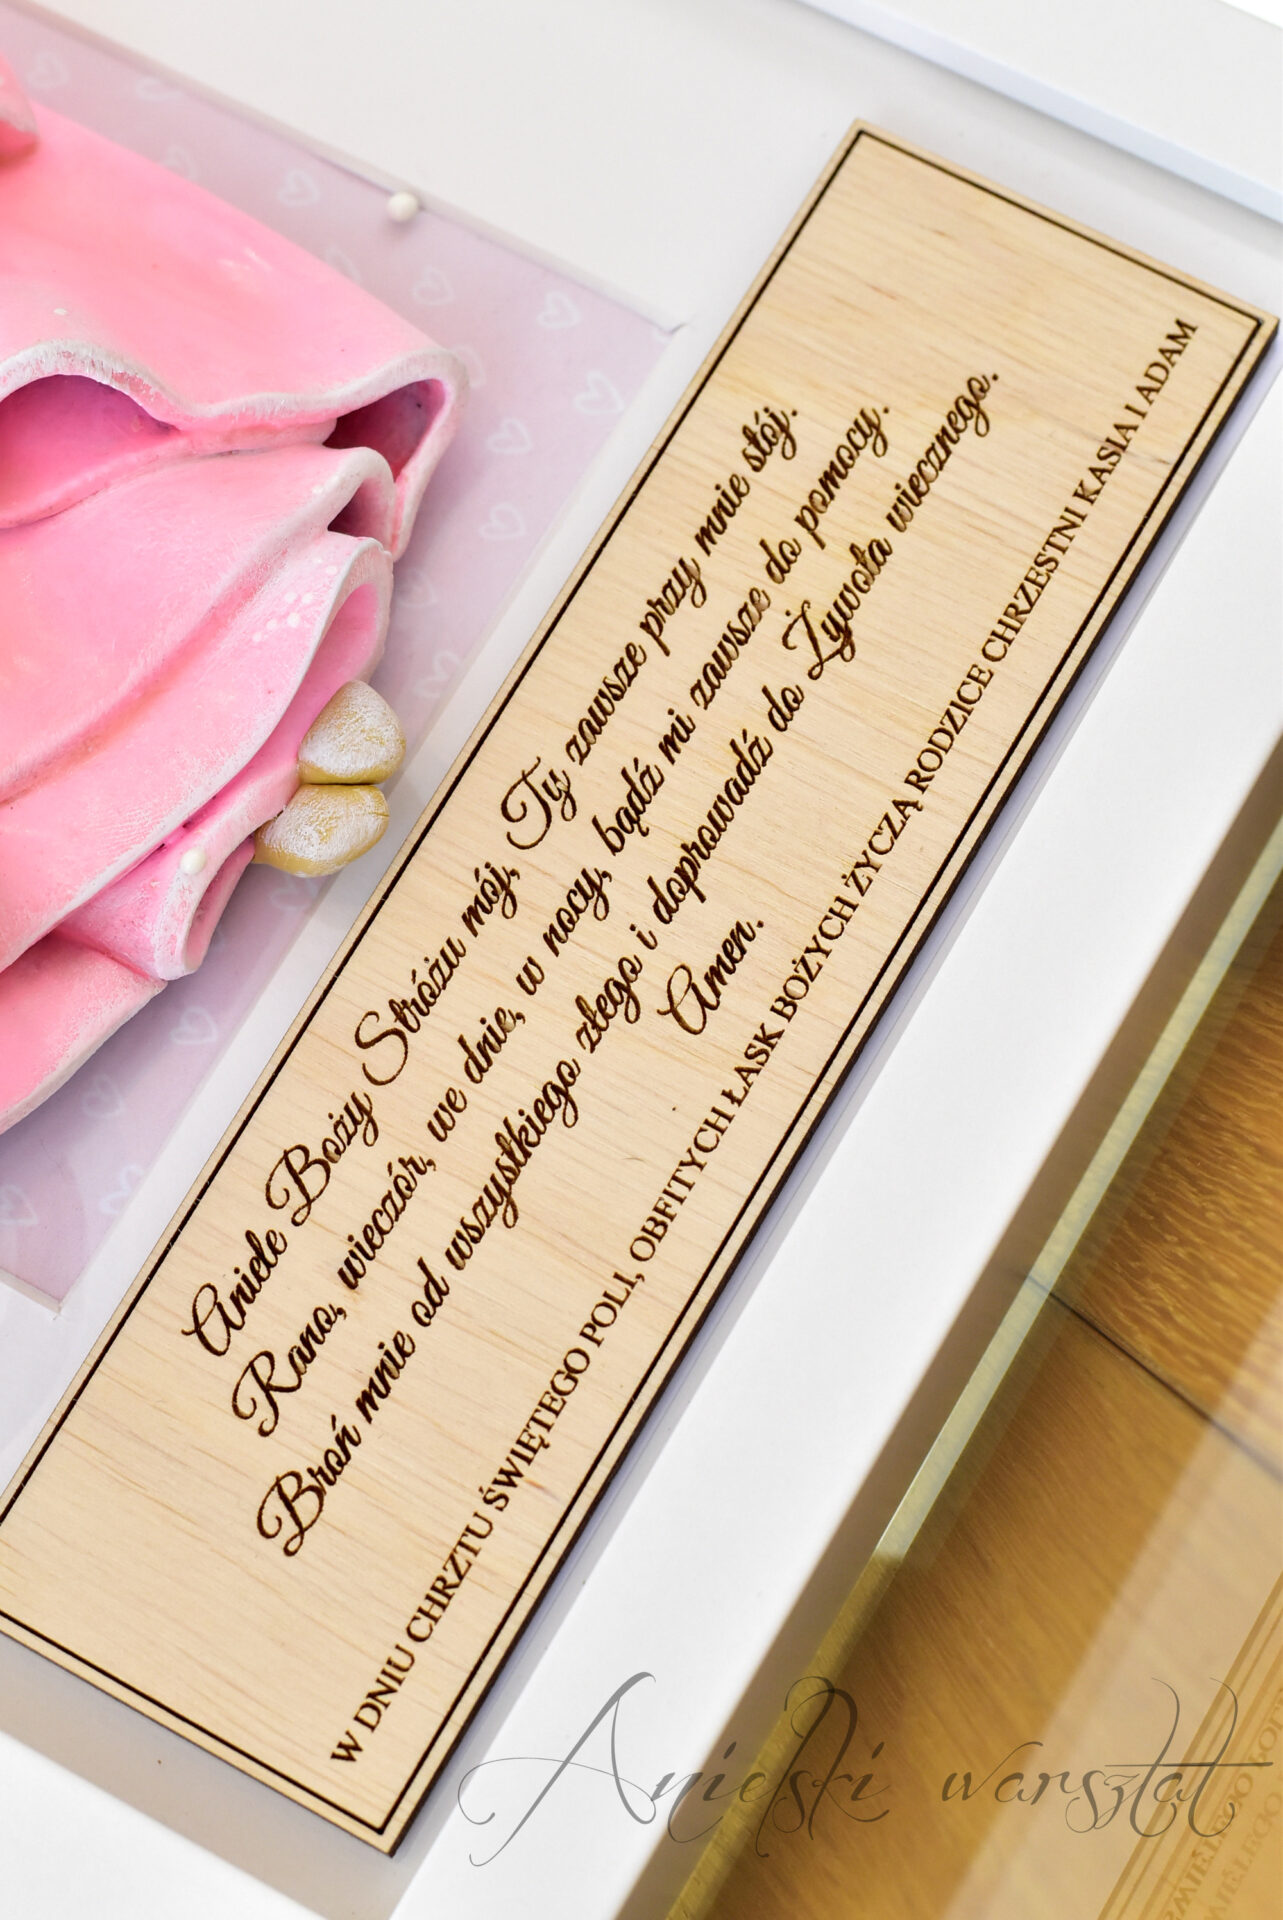 Aniele Boży Stróżu mój, Ty zawsze przy mnie stój.
Rano, wieczór, we dnie, w nocy, bądź mi zawsze do pomocy.
Broń mnie od wszystkiego złego i doprowadź do Żywota wiecznego.
Amen.
W DNIU CHRZTU ŚWIĘTEGO POLI, OBFITYCH ŁASK BOŻYCH ŻYCZĄ RODZICE CHRZESTNI KASIA I ADAM
Anielski warsztat